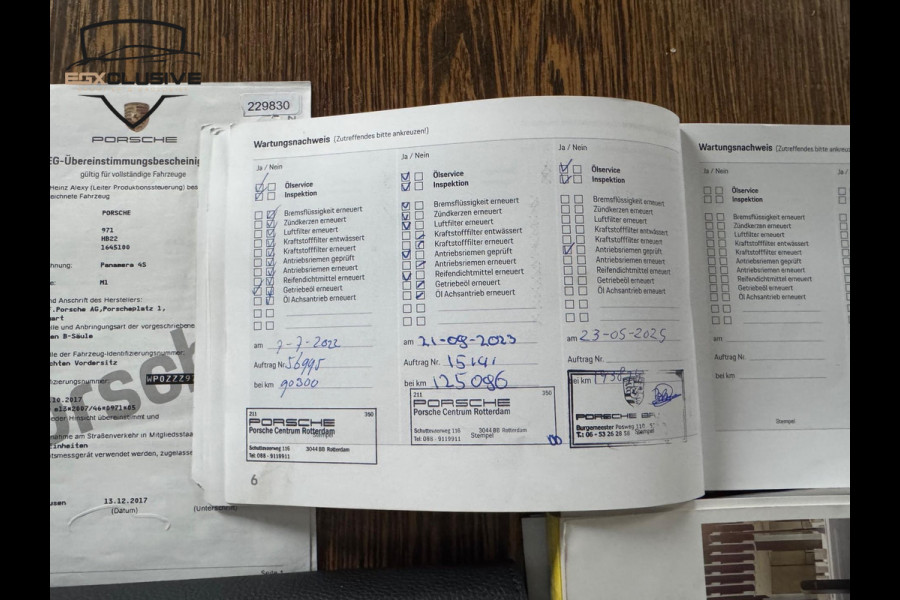 EGXOLUSIVE
PORSCHE
229830
EG-Übereinstimmungsbescheinig
gültig für vollständige Fahrzeuge
Heinz Alexy (Leiter Produktionssteuerung) bes
zeichnete Fahrzeug
PORSCHE
971
HB22
1645100
Panamera 4S
M1
nd Anschrift des Herstellers:
.Porsche AG,Porscheplatz 1,
elle und Anbringungsart der vorgeschriebene
n B-Säule
lle der Fahrzeug-Identifizierungsnummer:
chten Vordersitz
fizierungsnummer:
WP0ZZZ97
.10.2017
e13*2007/46*0971*05
eder Hinsicht übereinstimmt und
nahme am Straßenverkehr in Mitgliedsstaa
inheiten
itsmessgerät verwendet werden, zugelasse
13.12.2017
(Datum)
(Unterschrift)
Wartungsnachweis (Zutreffendes bitte ankreuzen!)
Ja / Nein
Ölservice
Inspektion
Bremsflüssigkeit erneuert
Zündkerzen erneuert
Luftfilter erneuert
Kraftstofffilter entwässert
Kraftstofffilter erneuert
Antriebsriemen geprüft
Antriebsriemen erneuert
Reifendichtmittel erneuert
Getriebeöl erneuert
Öl Achsantrieb erneuert
am 7-7-2022
Auftrag Nr. 56995
bei km 90300
211 350
PORSCHE
Porsche Centrum Rotterdam
Stempel
Schuttevaerweg 116 3044 BB Rotterdam
Tel: 088 - 9118911
6
Ja / Nein
Ölservice
Inspektion
Bremsflüssigkeit erneuert
Zündkerzen erneuert
Luftfilter erneuert
Kraftstofffilter entwässert
Kraftstofffilter erneuert
Antriebsriemen geprüft
Antriebsriemen erneuert
Reifendichtmittel erneuert
Getriebeöl erneuert
Öl Achsantrieb erneuert
am 21-09-2023
Auftrag Nr. 15141
bei km 125096
211 350
PORSCHE
Porsche Centrum Rotterdam
Schuttevaerweg 116 3044 BB Rotterdam
Tel: 088 - 9118911 Stempel
Ja / Nein
Ölservice
Inspektion
Bremsflüssigkeit erneuert
Zündkerzen erneuert
Luftfilter erneuert
Kraftstofffilter entwässert
Kraftstofffilter erneuert
Antriebsriemen geprüft
Antriebsriemen erneuert
Reifendichtmittel erneuert
Getriebeöl erneuert
Öl Achsantrieb erneuert
am 23-05-2025
Auftrag Nr.
bei km
PORSCHE
Burgemeester
Stempel
Wartungsnachweis (Zutreffendes bitte ankreuz
Ja / Nein
Ölservice
Inspektion
Bremsflüssigkeit erneuert
Zündkerzen erneuert
Luftfilter erneuert
Kraftstofffilter entwässert
Kraftstofffilter erneuert
Antriebsriemen geprüft
Antriebsriemen erneuert
Reifendichtmittel erneuert
Getriebeöl erneuert
Öl Achsantrieb erneuert
am
Auftrag Nr.
bei km
Stempel